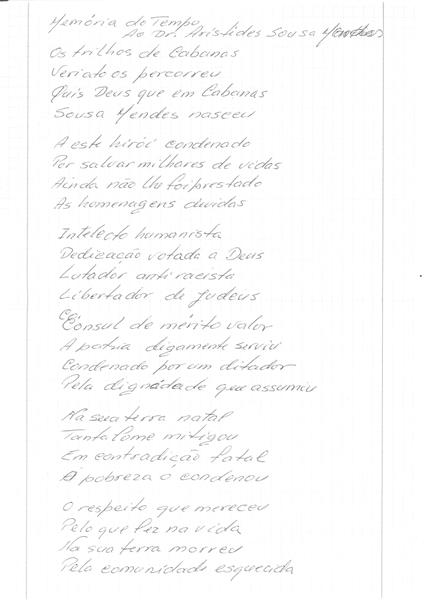 Memória do Tempo
Ao Dr. Aristides Sousa Mendes
Os trilhos de Cabanas
Veriato os percorreu
Quis Deus que em Cabanas
Sousa Mendes nasceu
A este hirói condenado
Por salvar milhares de vidas
Ainda não lhe foi prestado
As homenagens dividas
Intelecto humanista
Dedicação votada a Deus
Lutador anti racista
Libertador de Judeus
Cônsul de mérito valor
A patria digamente serviu
Condenado por um ditador
Pela dignidade que assumiu
Na sua terra natal
Tanta fome mitigou
Em contradição fatal
A pobreza o condenou
O respeito que mereceu
Pelo que fez na vida
Na sua terra morreu
Pela comunidade esquecida